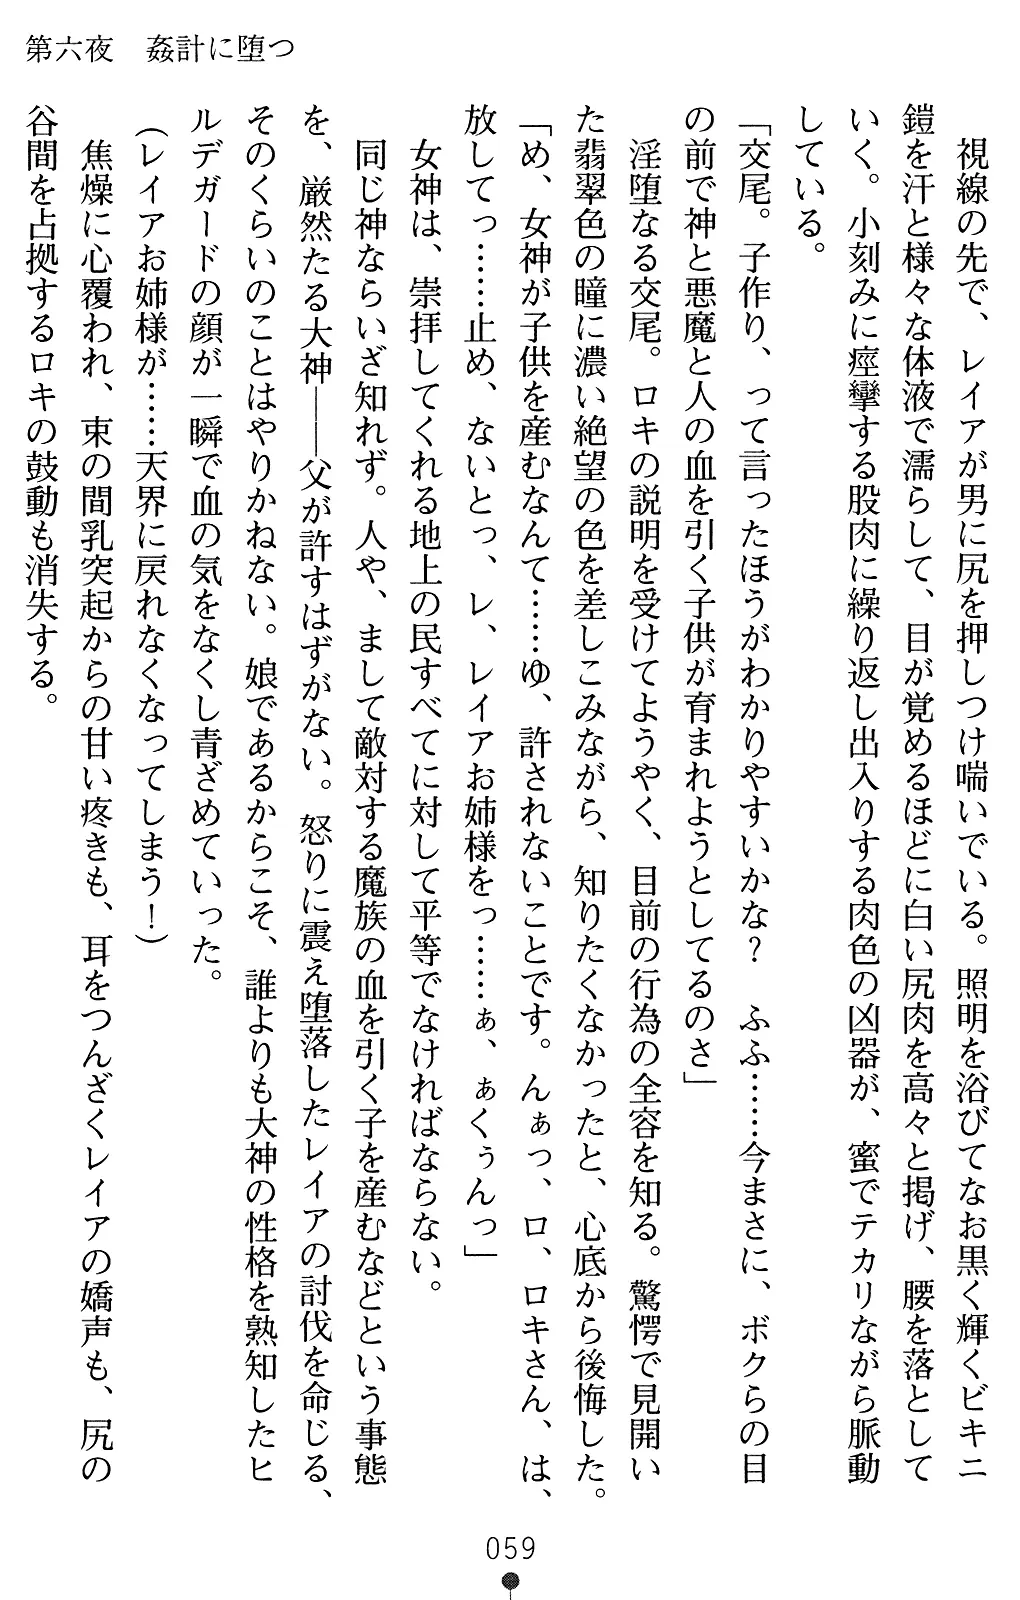 第六夜　姦計に堕つ
　視線の先で、レイアが男に尻を押しつけ喘いでいる。照明を浴びてなお黒く輝くビキニ
鎧を汗と様々な体液で濡らして、目が覚めるほどに白い尻肉を高々と掲げ、腰を落として
いく。小刻みに痙攣する股肉に繰り返し出入りする肉色の凶器が、蜜でテカリながら脈動
している。
「交尾。子作り、って言ったほうがわかりやすいかな？　ふふ……今まさに、ボクらの目
の前で神と悪魔と人の血を引く子供が育まれようとしてるのさ」
　淫堕なる交尾。ロキの説明を受けてようやく、目前の行為の全容を知る。驚愕で見開い
た翡翠色の瞳に濃い絶望の色を差しこみながら、知りたくなかったと、心底から後悔した。
「め、女神が子供を産むなんて……ゆ、許されないことです。んぁっ、ロ、ロキさん、は、
放してっ……止め、ないとっ、レ、レイアお姉様をっ……ぁ、ぁくぅんっ」
　女神は、崇拝してくれる地上の民すべてに対して平等でなければならない。
　同じ神ならいざ知れず。人や、まして敵対する魔族の血を引く子を産むなどという事態
を、厳然たる大神――父が許すはずがない。怒りに震え堕落したレイアの討伐を命じる、
そのくらいのことはやりかねない。娘であるからこそ、誰よりも大神の性格を熟知したヒ
ルデガードの顔が一瞬で血の気をなくし青ざめていった。
（レイアお姉様が……天界に戻れなくなってしまう！）
　焦燥に心覆われ、束の間乳突起からの甘い疼きも、耳をつんざくレイアの嬌声も、尻の
谷間を占拠するロキの鼓動も消失する。
059